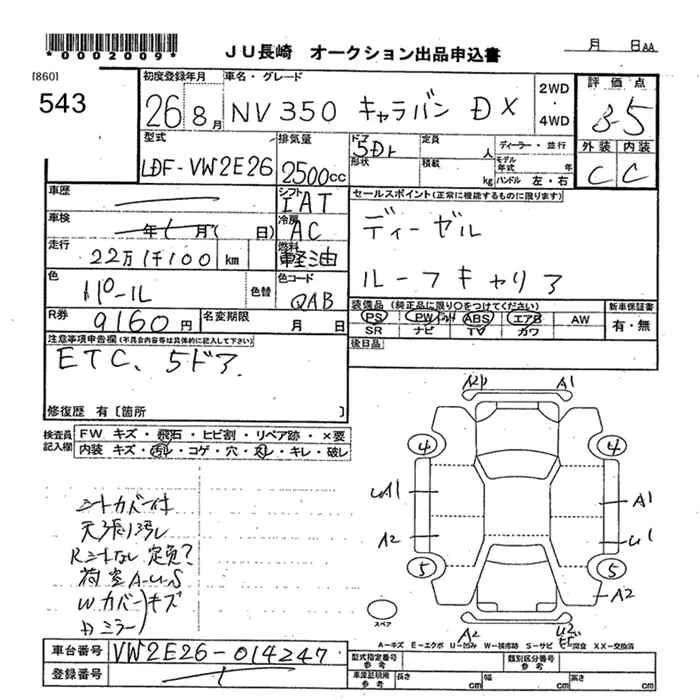 *0002009*
JU長崎 オークション出品申込書
月 日AA
[860]
543
初度登録年月
26 8月
車名・グレード
NV350 キャラバン DX
2WD
・
4WD
評価点
3-5
外装 内装
C C
型式
LDF-VW2E26
排気量
2500cc
ドア
5Dr
形状
定員
人
積載
kg
ディーラー・並行
モデル年式 年
ハンドル 左・右
車歴
シフト
IAT
車検
年 月( 日)
冷房
AC
走行
22万1千100 km
燃料
軽油
色
パール
色替
色コード
QAB
R券
9160円
名変期限
月 日
セールスポイント(正常に機能するものに限ります)
ディーゼル
ルーフキャリア
装備品(純正品に限り○をつけてください)
PS PW ABS エアB AW
SR ナビ TV カワ
新車保証書
有・無
後日品
注意事項申告欄(不具合内容等は具体的に記入して下さい)
ETC、5ドア
修復歴 有〔箇所 〕
検査員
記入欄
FW キズ・飛石・ヒビ割・リペア跡・×要
内装 キズ・汚レ・コゲ・穴・スレ・キレ・破レ
シートカバー付
天張り汚レ
Rシートなし 定員?
荷室A-U-S
Wカバーキズ
Dミラー
A1
4 4
A1
A2
U1
5 5
A2
A2
スペア
A-キズ E-エクボ U-凹ミ W-補修跡 S-サビ C-腐食 XX-交換済
車台番号
VW2E26-014247
登録番号
型式指定番号
参考
類別区分番号
参考
車庫証明用
参考
長さ cm
幅 cm
高さ cm